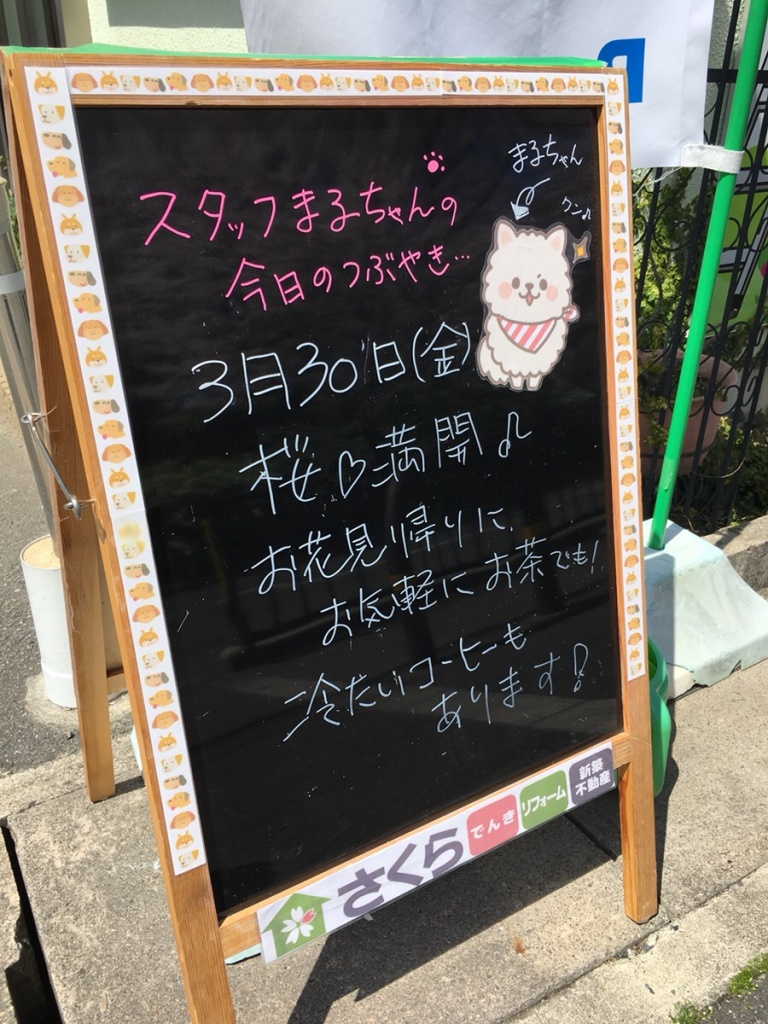 まるちゃん
クン♪
スタッフまるちゃんの
今日のつぶやき…
3月30日(金)
桜♡満開♪
お花見帰りに
お気軽にお茶でも!
冷たいコーヒーも
あります!
さくら でんき リフォーム 新築
不動産